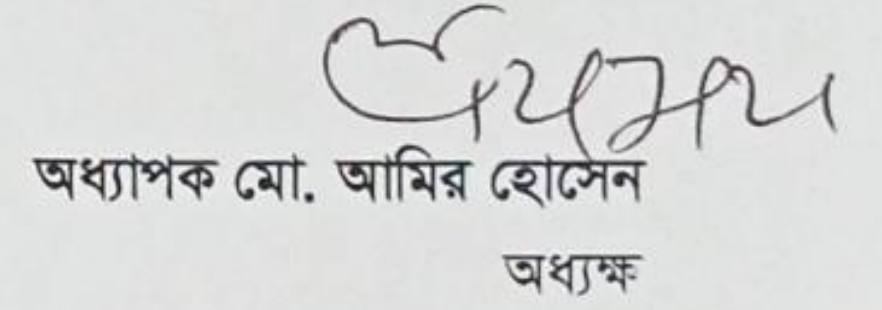 অধ্যাপক মো. আমির হোসেন
অধ্যক্ষ